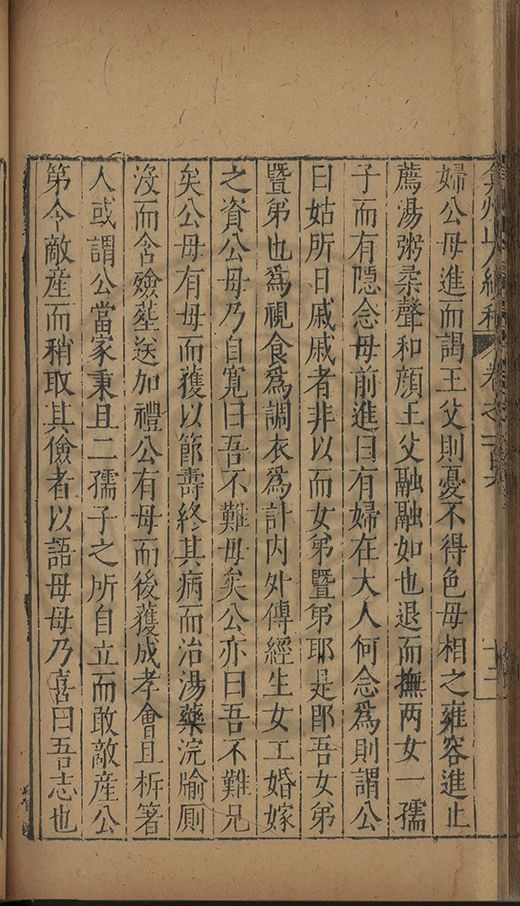 弇州山人續稿 卷之一百
婦公母進而謁王父則憂不得色母相之雍容進止
薦湯粥柔聲和顏王父融融如也退而撫两女一孺
子而有隠念母前進曰有婦在大人何念爲則謂公
曰姑所日戚戚者非以而女弟暨弟耶是郎吾女弟
暨弟也爲視食爲調衣爲計内外傅經生女工婚嫁
之資公母乃自寬曰吾不難母矣公亦曰吾不難兄
矣公母有母而獲以節壽終其病而治湯藥浣牏厠
沒而含殮塟送加禮公有母而後獲成孝會且析箸
人或謂公當家秉且二孺子之所自立而敢敵産公
第今敵産而稍取其儉者以語母母乃喜曰吾志也